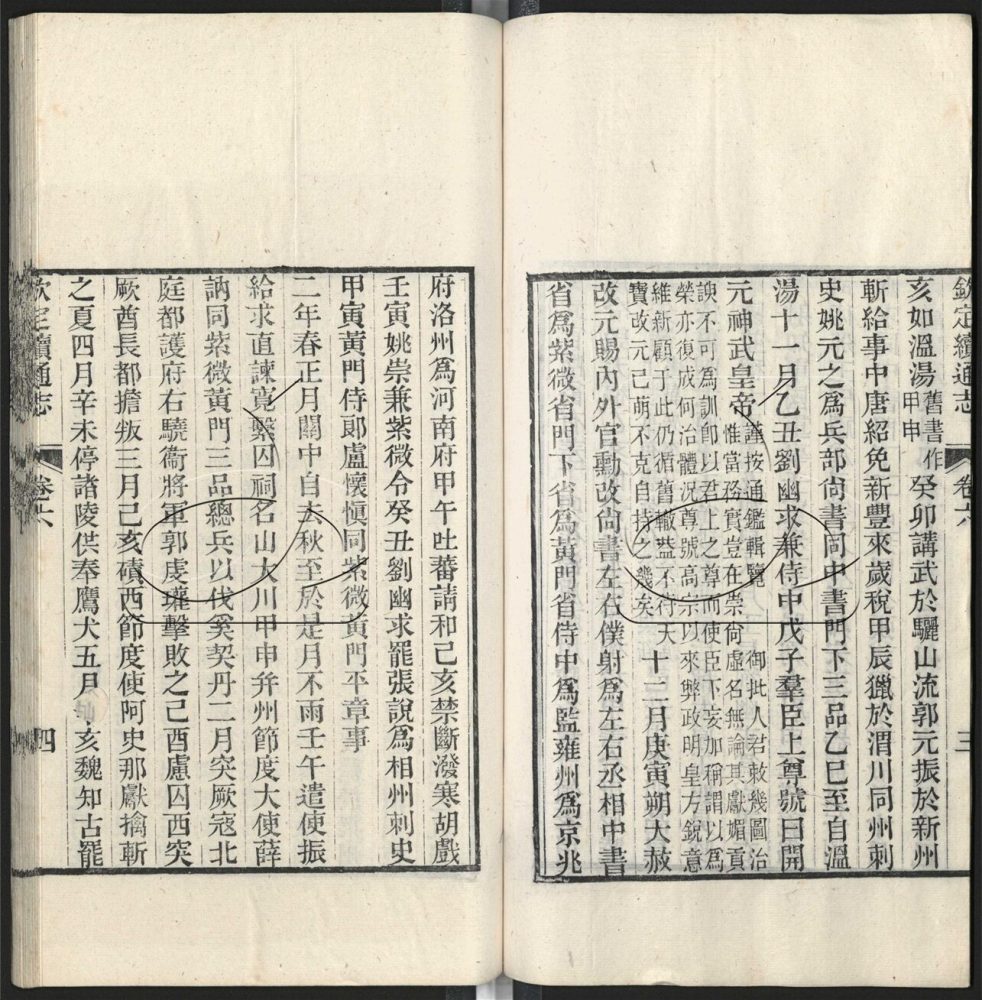 欽定續通志 卷六 三
亥如溫湯舊書作甲申癸卯講武於驪山流郭元振於新州
斬給事中唐紹免新豐來歲稅甲辰獵於渭川同州刺
史姚元之爲兵部尙書同中書門下三品乙巳至自溫
湯十一月乙丑劉幽求兼侍中戊子羣臣上尊號曰開
元神武皇帝謹按通鑑輯覽 御批人君敕幾圖治
惟當務實豈在崇尙虛名無論其獻媚貢
諛不可爲訓卽以君上之尊而使臣下妄加稱謂以爲
榮亦復成何治體況尊號高宗以來弊政明皇方銳意
維新顧于此仍循舊轍蓋不待天
寶改元已萌不克自持之幾矣十二月庚寅朔大赦
改元賜內外官勳改尙書左右僕射爲左右丞相中書
省爲紫微省門下省爲黃門省侍中爲監雍州爲京兆
府洛州爲河南府甲午吐蕃請和己亥禁斷潑寒胡戲
壬寅姚崇兼紫微令癸丑劉幽求罷張說爲相州刺史
甲寅黃門侍郞盧懷愼同紫微黃門平章事
二年春正月關中自去秋至於是月不雨壬午遣使振
給求直諫寬繫囚祠名山大川甲申幷州節度大使薛
訥同紫微黃門三品總兵以伐奚契丹二月突厥寇北
庭都護府右驍衞將軍郭虔瓘擊敗之己酉慮囚西突
厥酋長都擔叛三月己亥磧西節度使阿史那獻擒斬
之夏四月辛未停諸陵供奉鷹犬五月亥魏知古罷
欽定續通志 卷六 四